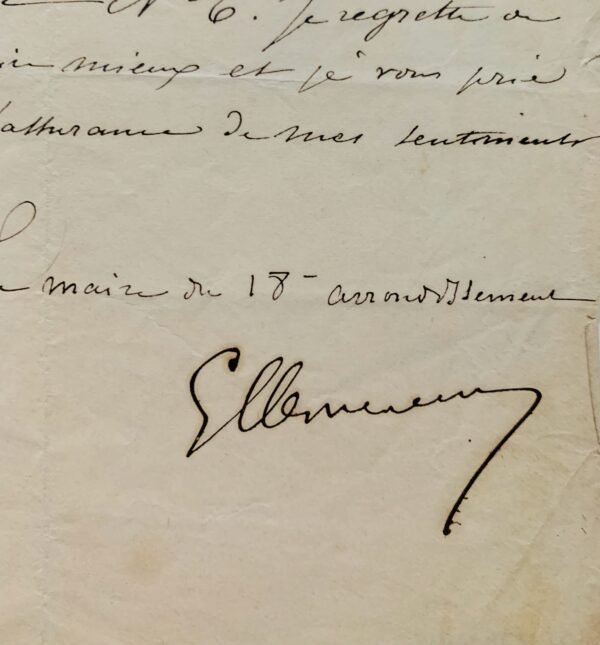 N° 6. Je regrette de
mieux et je vous prie
l'assurance de mes sentiments
Le maire du 18e arrondissement
GClemenceau